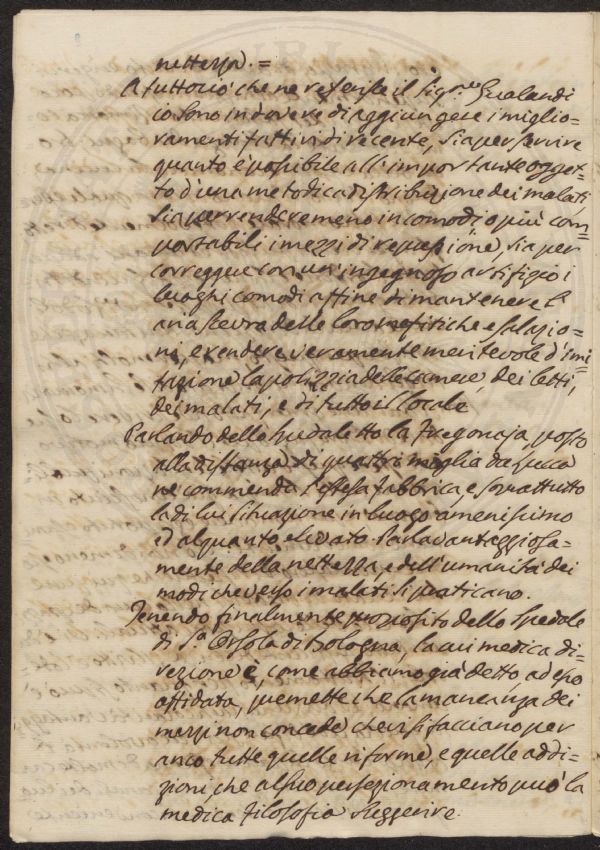 nettezza. =
A tuttociò che ne referisce il Sig.re Gualandi
io sono in dovere di aggiungere i miglio-
ramenti fattivi di recente, sia per servire
quanto è possibile all'importante ogget-
to d'una metodica distribuzione dei malati,
sia per rendere meno incomodi o più com=
portabili i mezzi di repressione, sia per
correggere con un'ingegnoso artifizio i
luoghi comodi affine di mantenere l'
aria scevra delle loro mefitiche esalazio-
ni, e rendere veramente meritevole d'imi=
tazione la polizzia delle camere, dei letti,
dei malati, e di tutto il locale.
Parlando dello Spedale detto la Fregonaja, posto
alla distanza di quattro miglia da Lucca
ne commenda l'estesa fabbrica e soprattutto
la di lui situazione in luogo amenissimo
ed alquanto elevato. Parla vantaggiosa=
mente della nettezza, e dell'umanità dei
modi che verso i malati si praticano.
Tenendo finalmente proposito dello Spedale
di S.a Orsola di Bologna, la cui medica di-
rezione è, come abbiamo già detto, ad esso
affidata, premette che la mancanza dei
mezzi non concede che vi si facciano per
anco tutte quelle riforme, e quelle addi-
zioni che al suo perfezionamento può la
medica Filosofia suggerire.